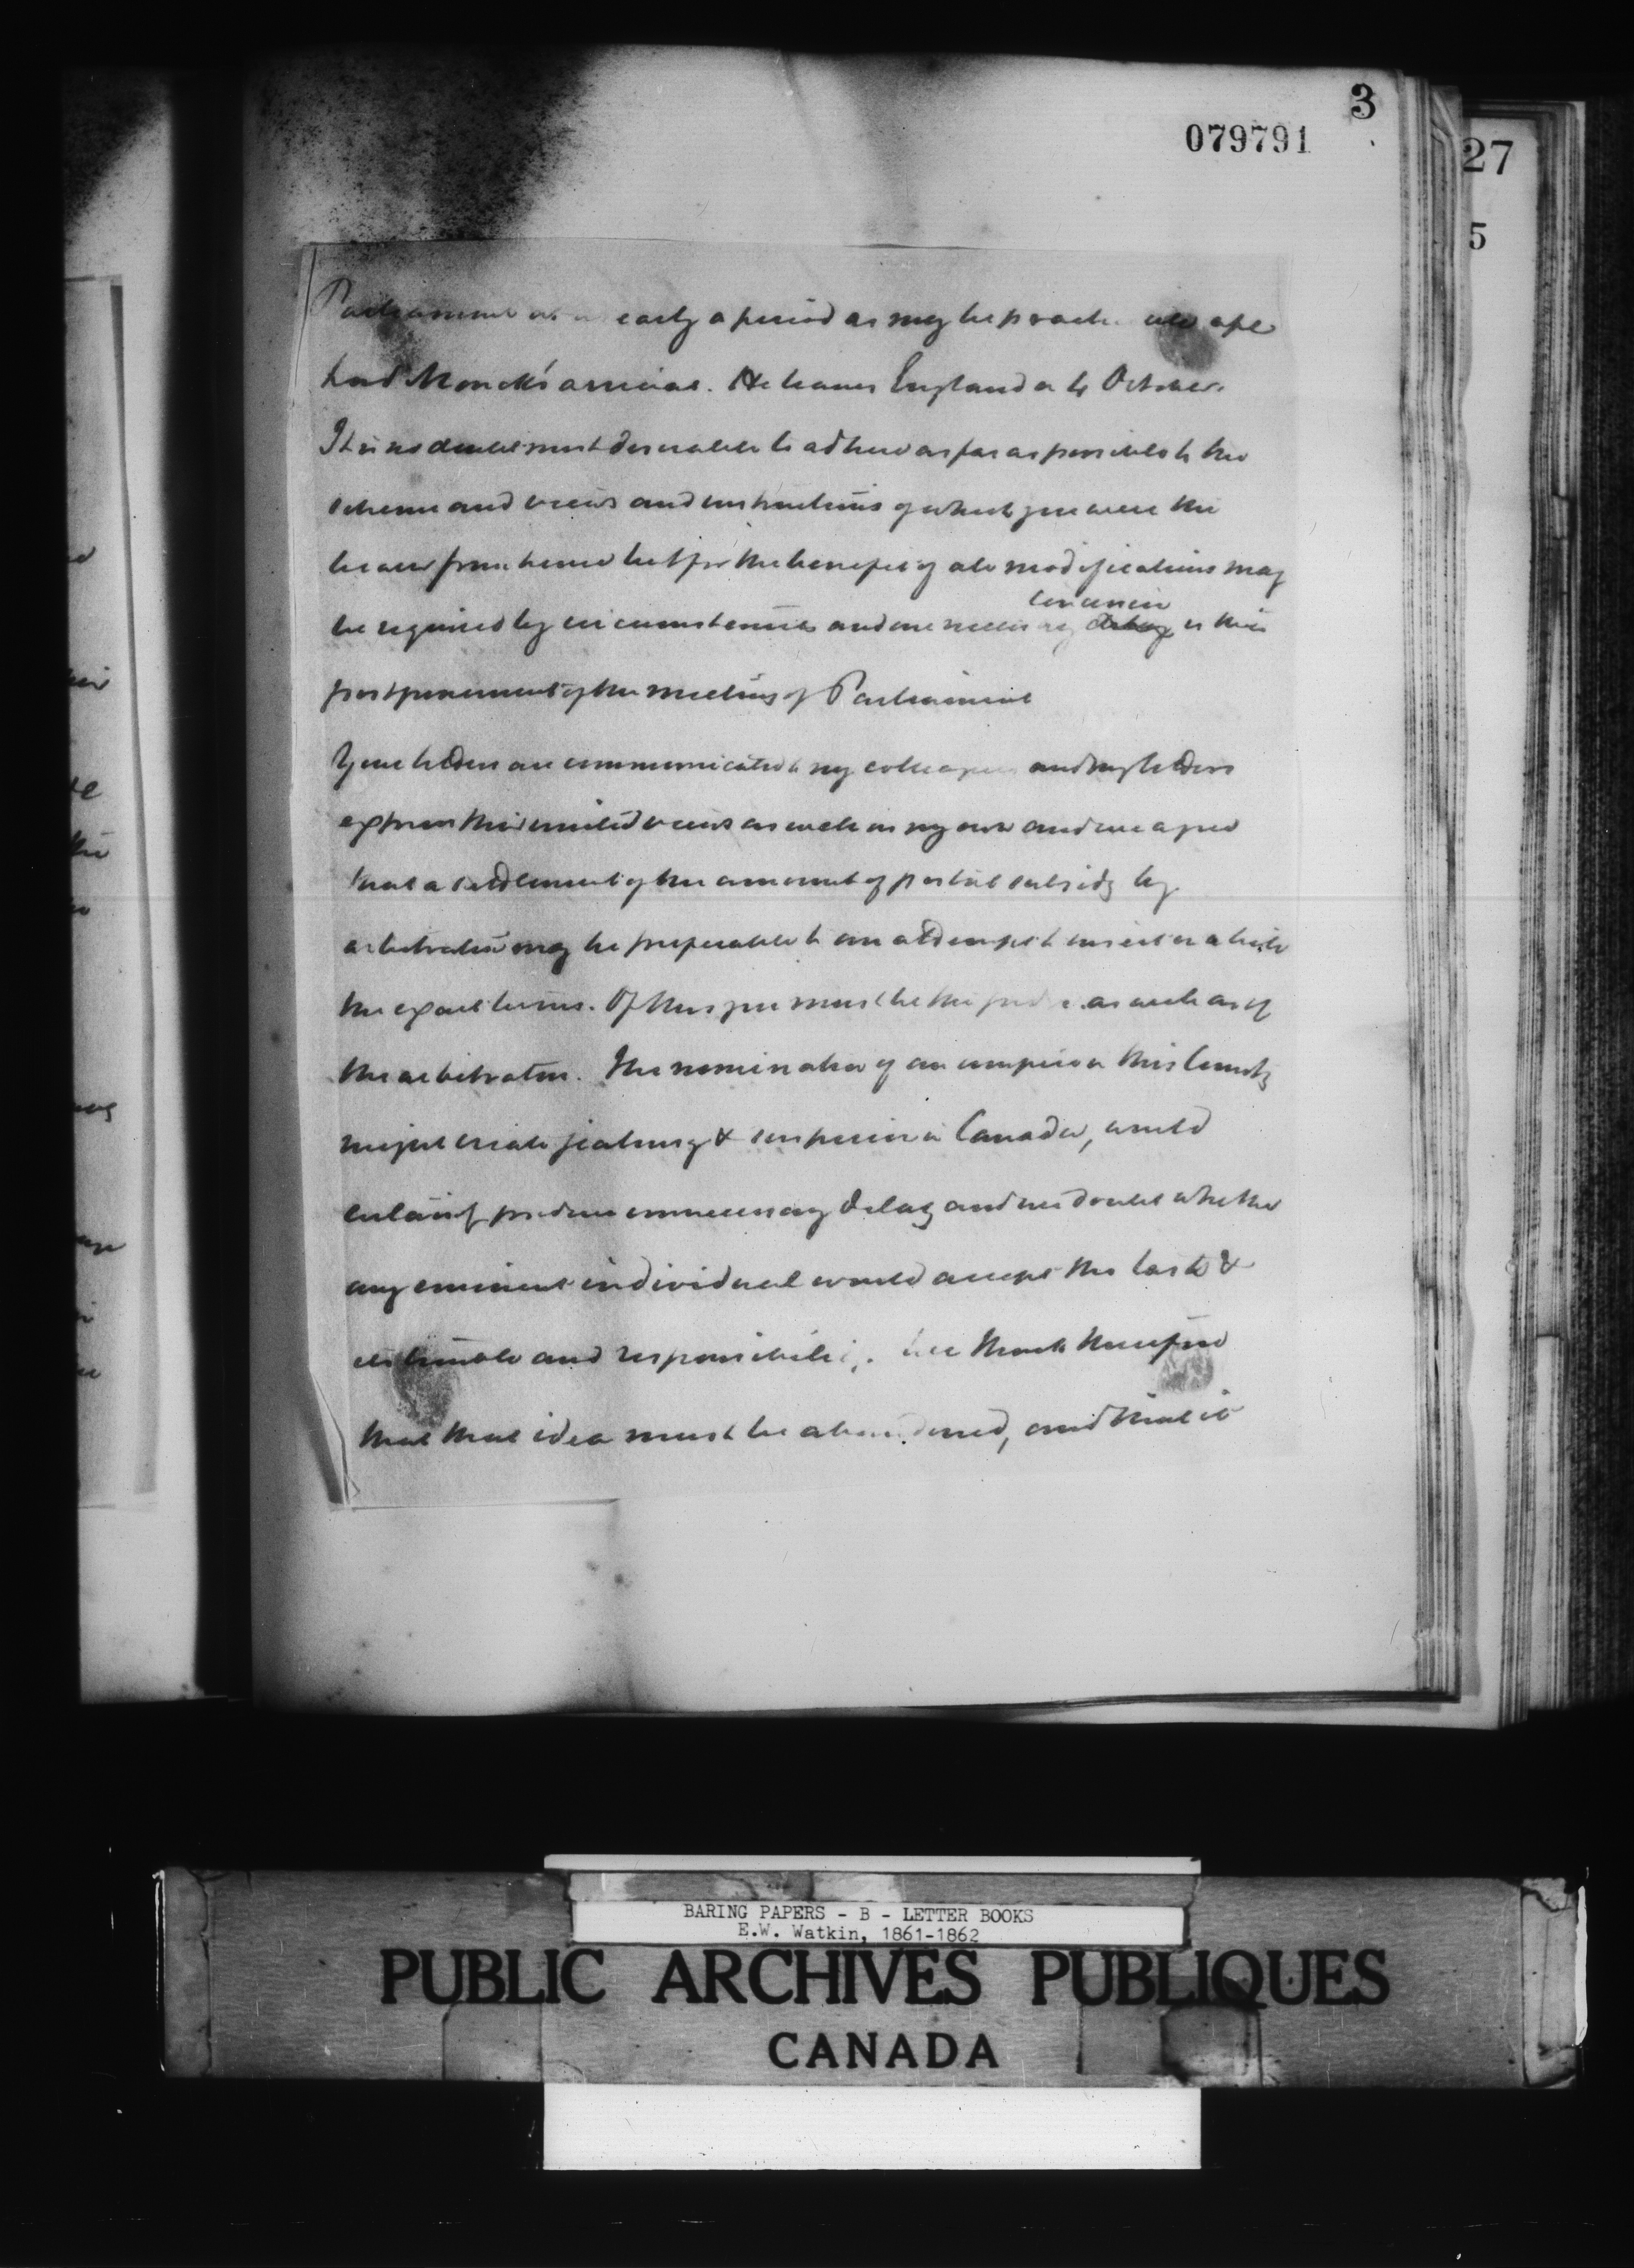 3
079791
27
5
Parliament at as early a period as may be practicable after
Lord Monck's arrival. He leaves England on 4 October.
It is no doubt most desirable to adhere as far as possible to the
scheme and views and instructions of which you were the
bearer from hence but for the benefit of all modifications may
concession
be required by circumstances and one necessary delay is this
postponement of the meeting of Parliament
Your letters are communicated to my colleagues and my letters
express their united views as well as my own and we agree
that a settlement of the amount of postal subsidy by
arbitration may be preferable to an attempt to insist on a
the exact terms. Of this you must be the judge as well as of
the arbitrators. The nomination of an umpire in this Country
might create jealousy & suspicion in Canada, would
certainly produce unnecessary delay and we doubt whether
any eminent individual would accept the task &
its trouble and responsibility. We think therefore
that that idea must be abandoned, and that it
BARING PAPERS - B - LETTER BOOKS
E.W. Watkin, 1861-1862
PUBLIC ARCHIVES PUBLIQUES
CANADA